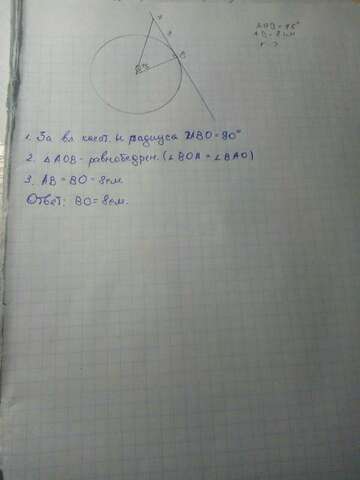 ∠AOB = 45°
AB = 8 см
r - ?
A
8
B
O
45
1. За вл касат. и радиуса ∠ABO = 90°
2. △AOB - равнобедрен. (∠BOA = ∠BAO)
3. AB = BO = 8см
Ответ: BO = 8см.